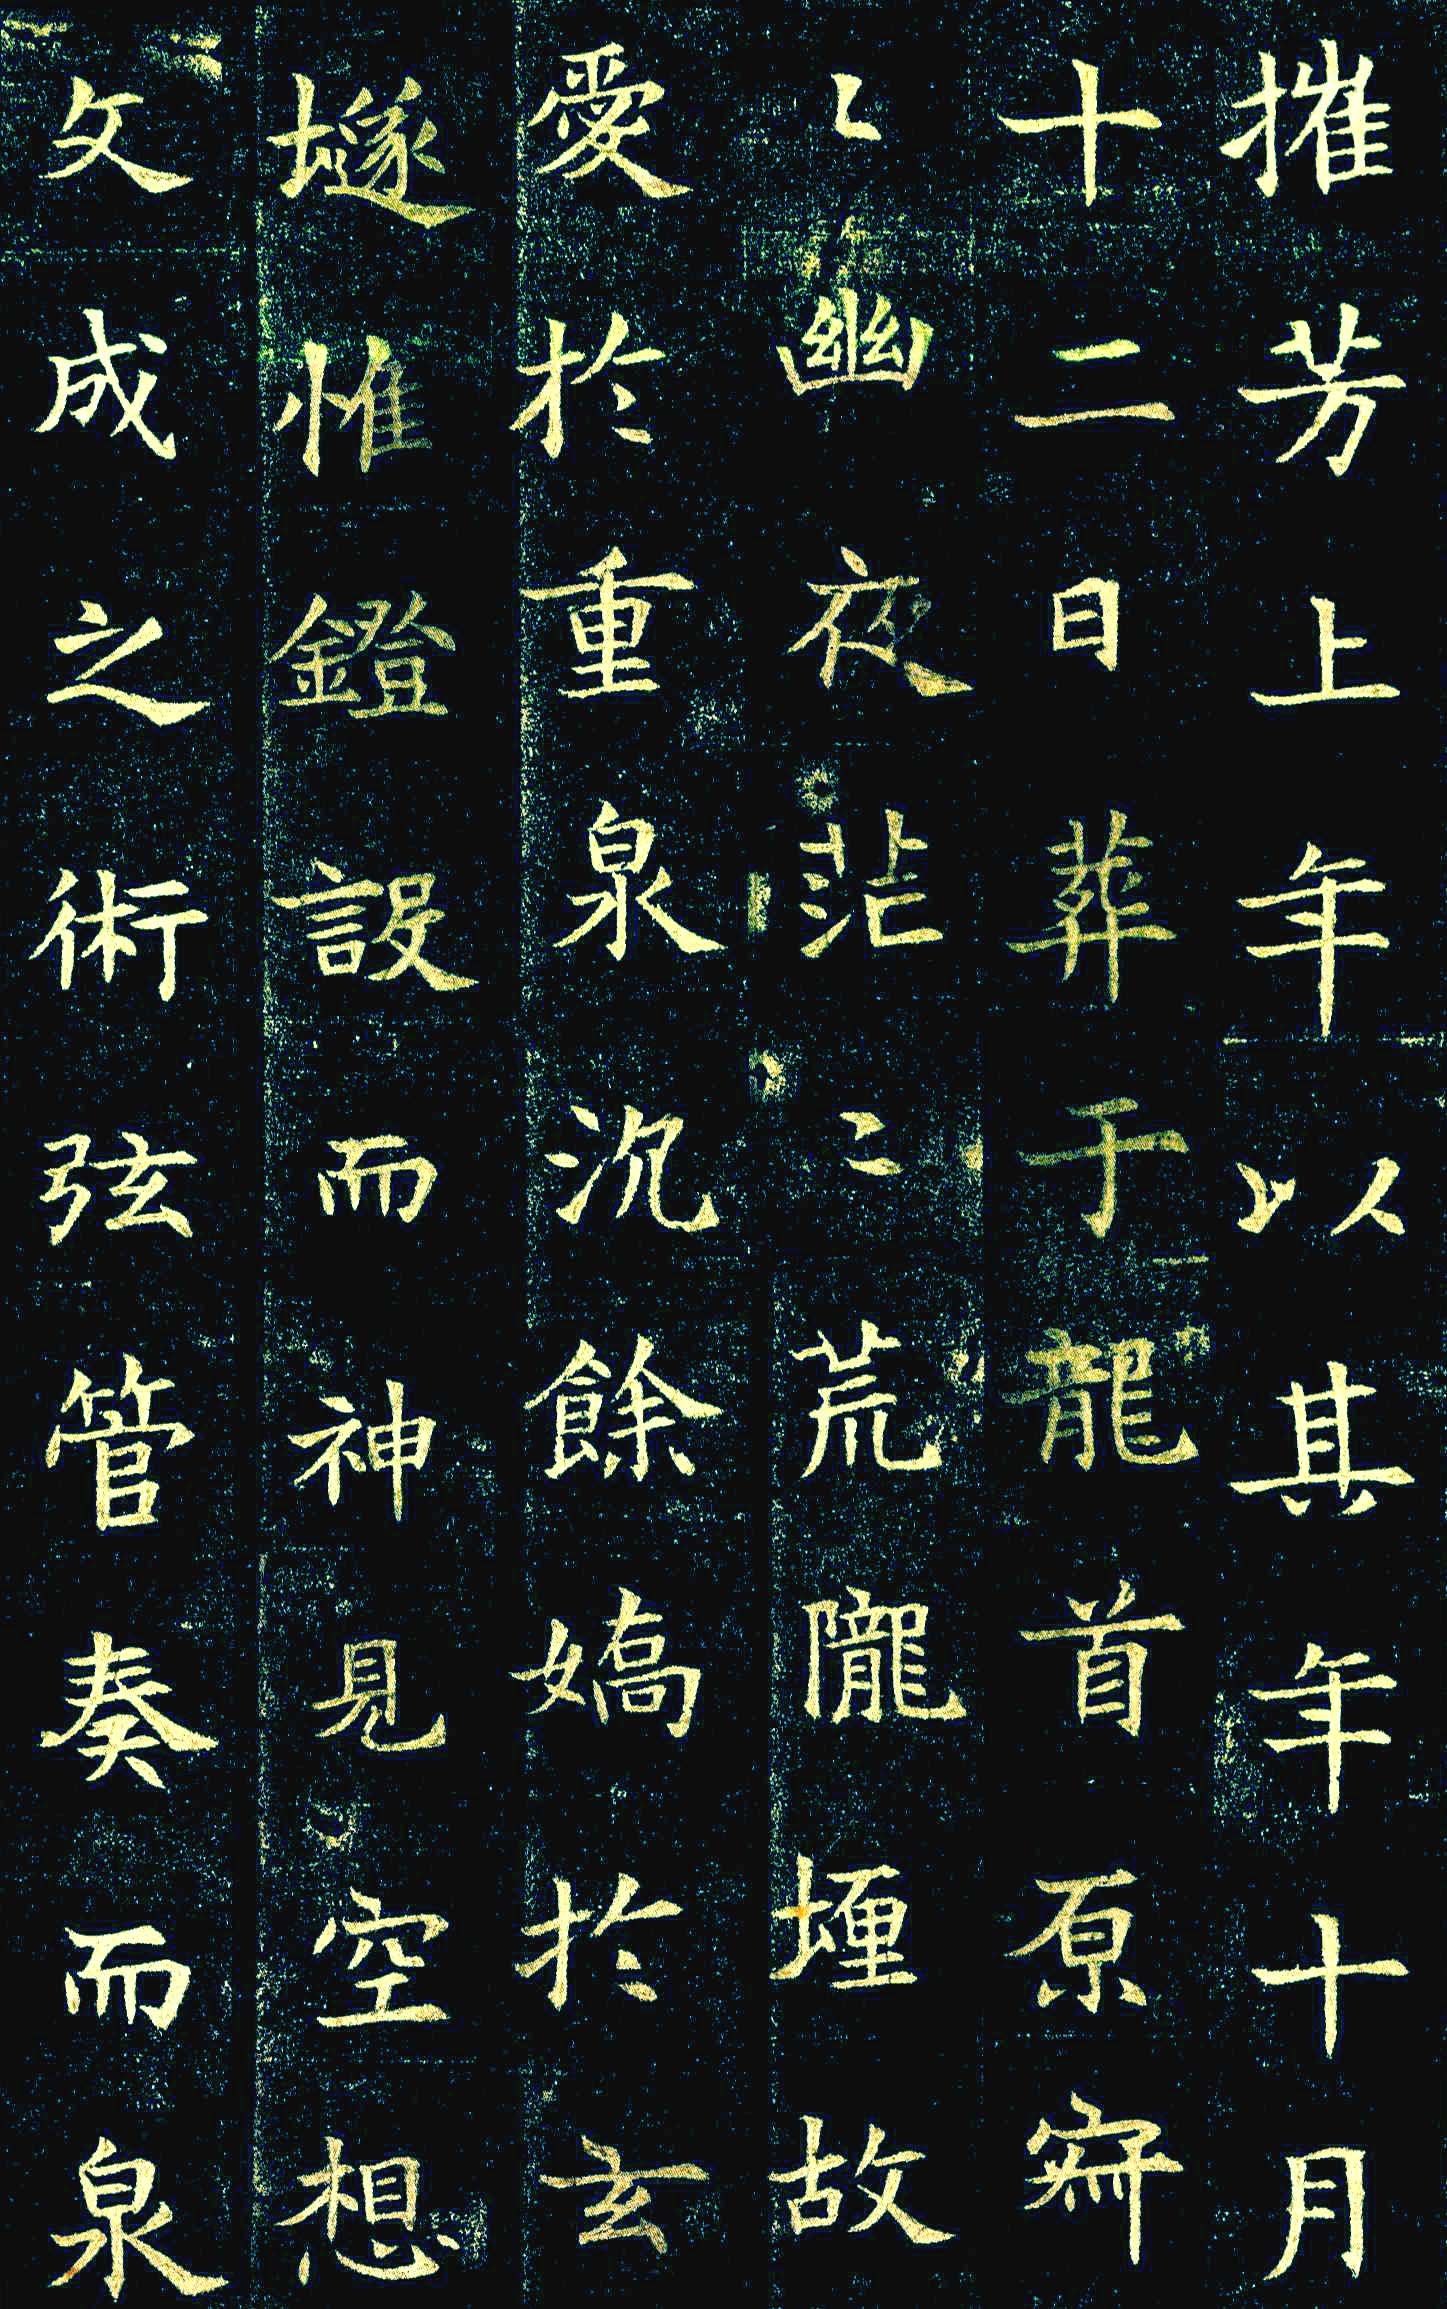 摧芳上年以其年十月
十二日葬于龍首原㝥
〻幽夜茫〻荒隴堙故
愛於重泉沉餘嬌於玄
墜惟鐙設而神見空想
文成之術弦管奏而泉